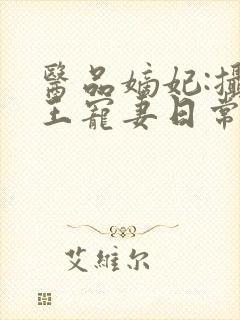 醫品嫡妃:攝
王寵妻日常
艾維尔